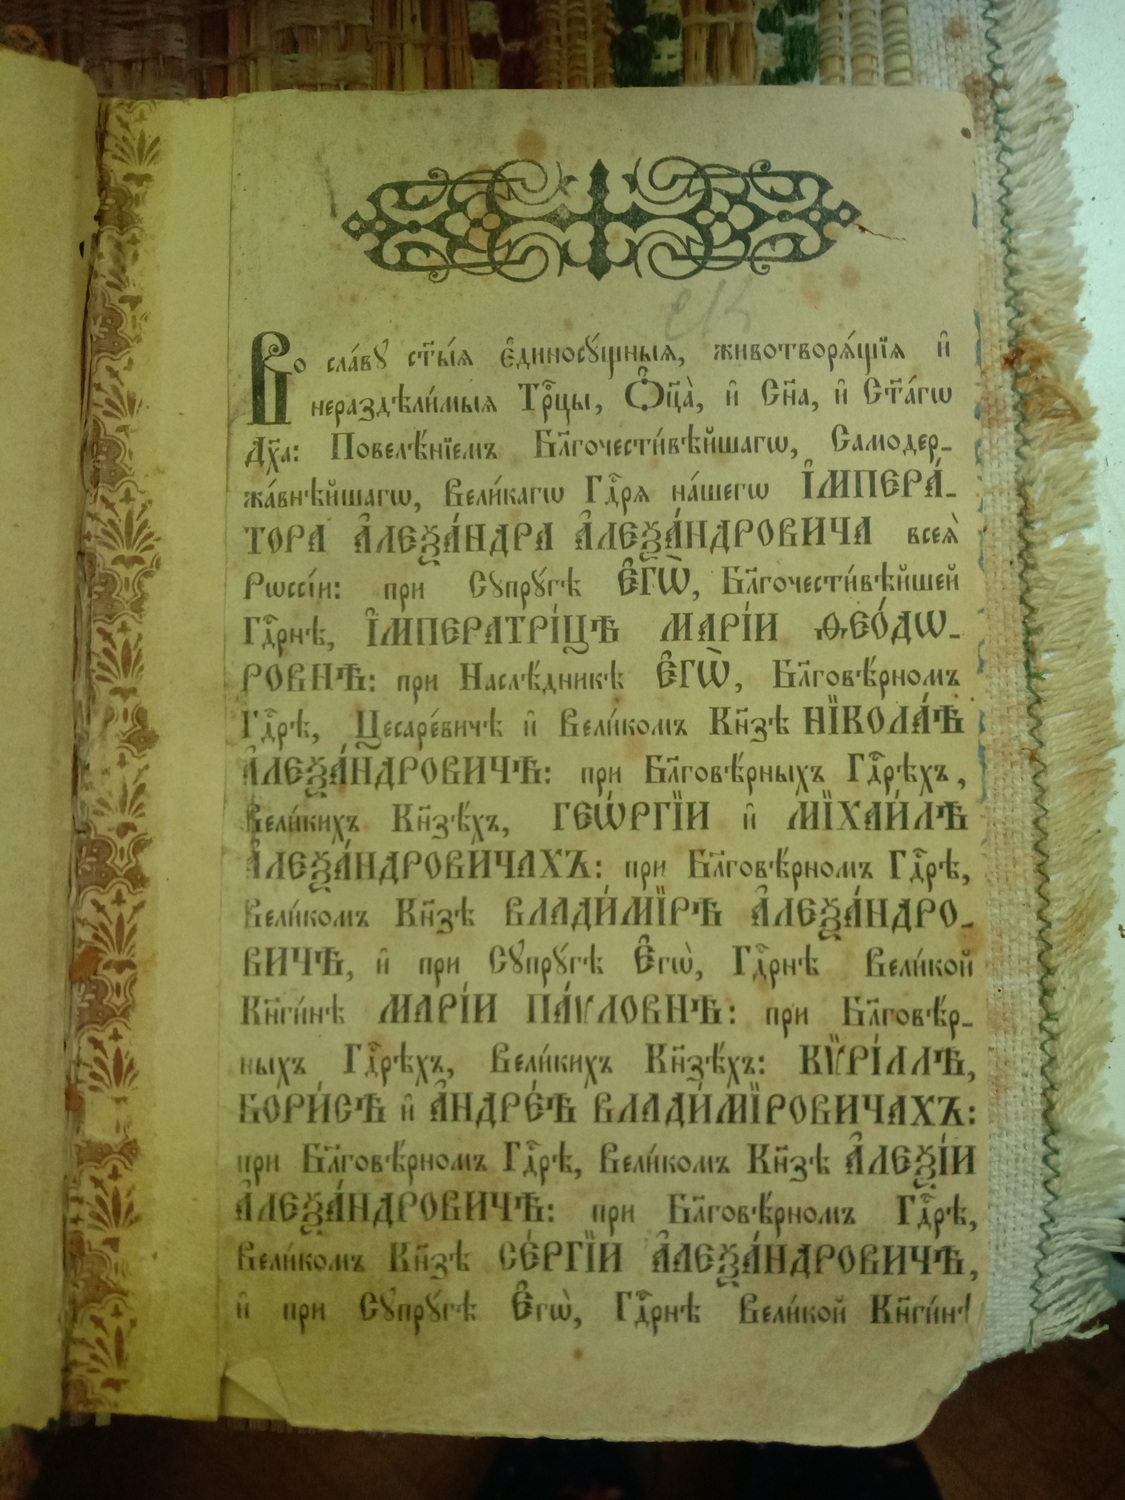 Во сла́вꙋ ст҃ы́ѧ є҆диносꙋ́щныѧ, животворѧ́щїѧ и҆
нераздѣли́мыѧ Трⷪ҇цы, Ѻ҆ц҃а̀, и҆ Сн҃а, и҆ Ст҃а́гѡ
Дх҃а: Повелѣ́нїемъ Бл҃гочести́вѣйшагѡ, Самодер-
жа́внѣйшагѡ, Вели́кагѡ Гдⷭ҇рѧ на́шегѡ І҆МПЕРА́-
ТОРА А҆ЛЕѮА́НДРА А҆ЛЕѮА́НДРОВИЧА всеѧ̀
Рѡссі́и: при Сꙋпрꙋ́гѣ Є҆ГѠ̀, Бл҃гочести́вѣйшей
Гдⷭ҇рнѣ, І҆МПЕРАТРІ́ЦѢ МАРІ́И Ѳ҆ЕО́ДѠ-
РОВНѢ: при Наслѣ́дникѣ Є҆ГѠ̀, Бл҃говѣ́рномъ
Гдⷭ҇рѣ, Цесаре́вичѣ и҆ Вели́комъ Кн҃зѣ НЇКОЛА́Ѣ
А҆ЛЕѮА́НДРОВИЧѢ: при Бл҃говѣ́рныхъ Гдⷭ҇рѣхъ,
Вели́кихъ Кн҃зѣ́хъ, ГЕѠ́РГЇИ и҆ МЇХАИ́ЛѢ
А҆ЛЕѮА́НДРОВИЧАХЪ: при Бл҃говѣ́рномъ Гдⷭ҇рѣ,
Вели́комъ Кн҃зѣ ВЛАДИ́МЇРѢ А҆ЛЕѮА́НДРО-
ВИЧѢ, и҆ при Сꙋпрꙋ́гѣ Є҆гѡ̀, Гдⷭ҇рнѣ Вели́кой
Кн҃ги́нѣ МАРІ́И ПА́ѴЛОВНѢ: при Бл҃говѣ́р-
ныхъ Гдⷭ҇рѣхъ, Вели́кихъ Кн҃зѣ́хъ: КѶРІ́ЛЛѢ,
БОРИ́СѢ и҆ А҆НДРЕ́Ѣ ВЛАДИ́МЇРОВИЧАХЪ:
при Бл҃говѣ́рномъ Гдⷭ҇рѣ, Вели́комъ Кн҃зѣ А҆ЛЕѮІ́И
А҆ЛЕѮА́НДРОВИЧѢ: при Бл҃говѣ́рномъ Гдⷭ҇рѣ,
Вели́комъ Кн҃зѣ СЕ́РГЇИ А҆ЛЕѮА́НДРОВИЧѢ,
и҆ при Сꙋпрꙋ́гѣ Є҆гѡ̀, Гдⷭ҇рнѣ Вели́кой Кн҃ги́нѣ